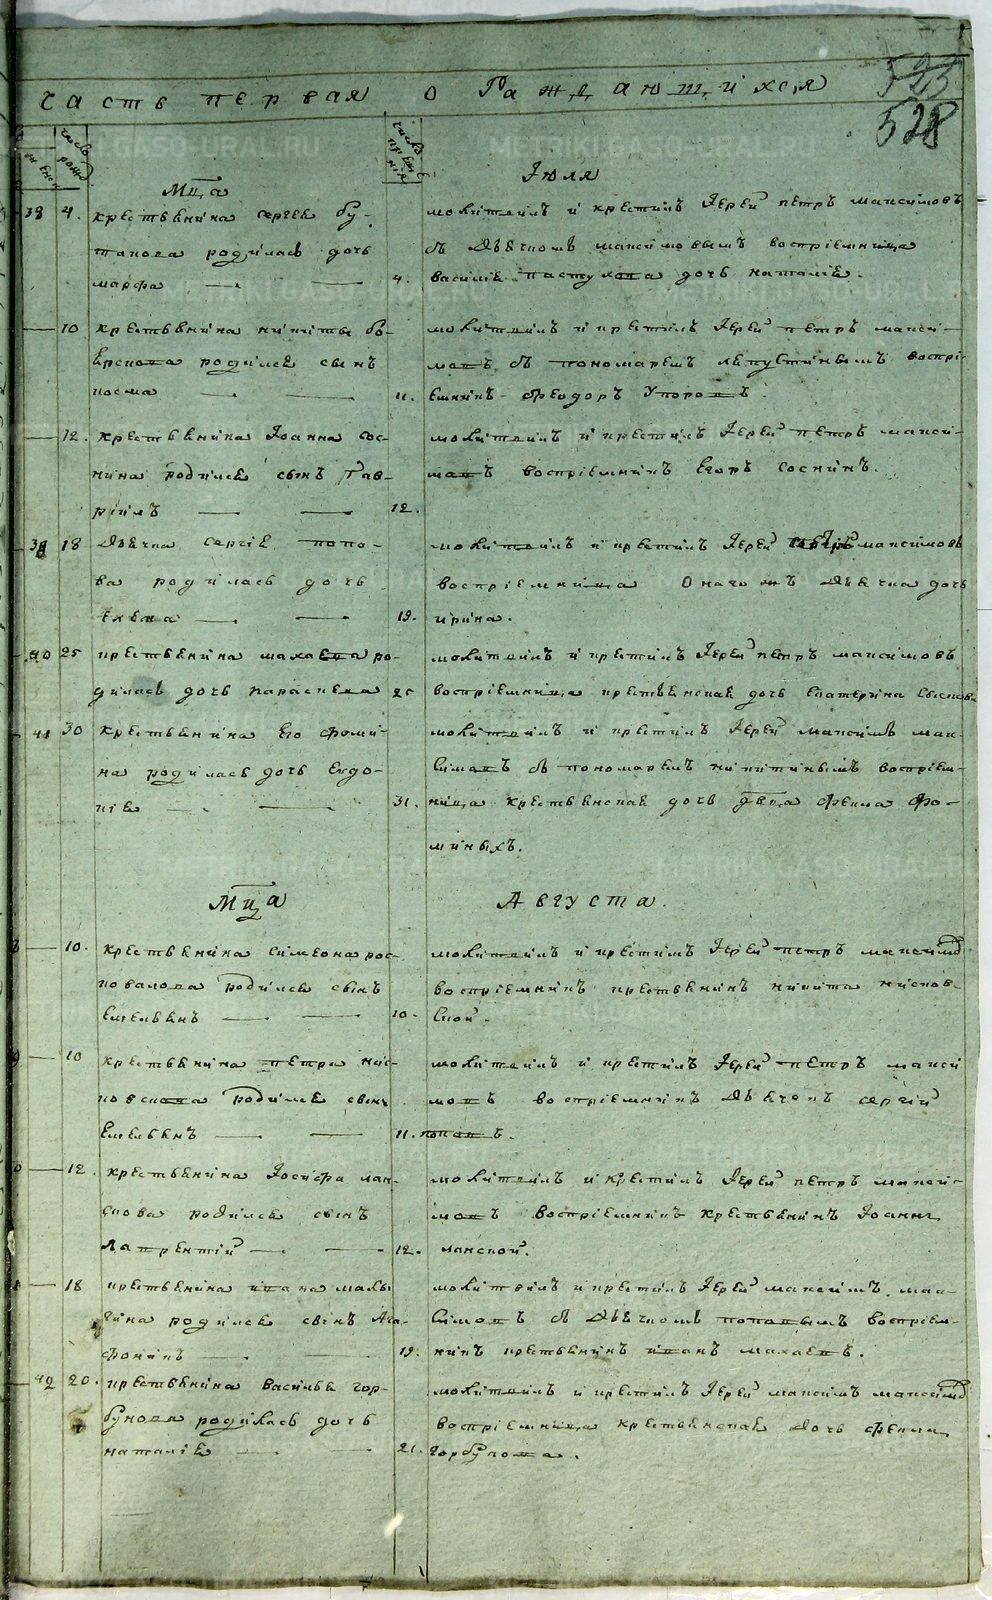 525
528
Часть первая о Раждающихся
число рожд.
число крещения
Мца Іюля
38 4. крестьянина сергея бу-
танова родилась дочь
марфа
4.
молитвилъ и крестилъ Іерей петръ максимовъ
съ дьячкомъ максимовымъ воспріемница
василія пастухова дочь наталія.
10 крестьянина никиты бо-
ярскова родился сынъ
косма
11.
молитвилъ и крестилъ Іерей петръ макси-
мовъ съ пономаремъ воспрі-
емникъ феодоръ Упоровъ.
12. крестьянина Іоанна сос-
нина родился сынъ Гав-
ріилъ
12.
молитвилъ и крестилъ Іерей петръ макси-
мовъ воспріемникъ Егоръ соснинъ.
39 18 Дьячка сергія попо-
ва родилась дочь
елена
19.
молитвилъ и крестилъ Іерей петръ максимовъ
воспріемница Онаго жъ Дьячка дочь
ирина.
40 25 крестьянина махаева ро-
дилась дочь параскева
25
молитвилъ и крестилъ Іерей петръ максимовъ
воспріемница крестьянская дочь екатерина
41 30 крестьянина фоми-
на родилась дочь Евдо-
кія
31.
молитвилъ и крестилъ Іерей максимъ мак-
симовъ съ пономаремъ никитинымъ воспріем-
ница крестьянская дочь двца фекла фо-
миныхъ.
Мца Августа.
10. крестьянина симеона рос-
ковалова родился сынъ
Емельянъ
10.
молитвилъ и крестилъ Іерей петръ максимовъ
воспріемникъ крестьянинъ никита нисков-
ской.
10 крестьянина петра нис-
ковскова родился сынъ
Емельянъ
11.
молитвилъ и крестилъ Іерей петръ макси
мовъ воспріемникъ Дьячекъ сергій
поповъ.
12. крестьянина Іосифа лан-
скова родился сынъ
лаврентій
12.
молитвилъ и крестилъ Іерей петръ макси-
мовъ воспріемникъ крестьянинъ Іоаннъ
ланской.
18 крестьянина ивана малы
гина родился сынъ Ага-
фоникъ
19.
молитвилъ и крестилъ Іерей максимъ мак-
симовъ съ Дьячкомъ поповымъ воспріем-
никъ крестьянинъ иванъ махаевъ.
42 20. крестьянина василья гор-
бунова родилась дочь
наталія
21.
молитвилъ и крестилъ Іерей максимъ максимовъ
воспріемница крестьянская дочь фекла
горбунова.